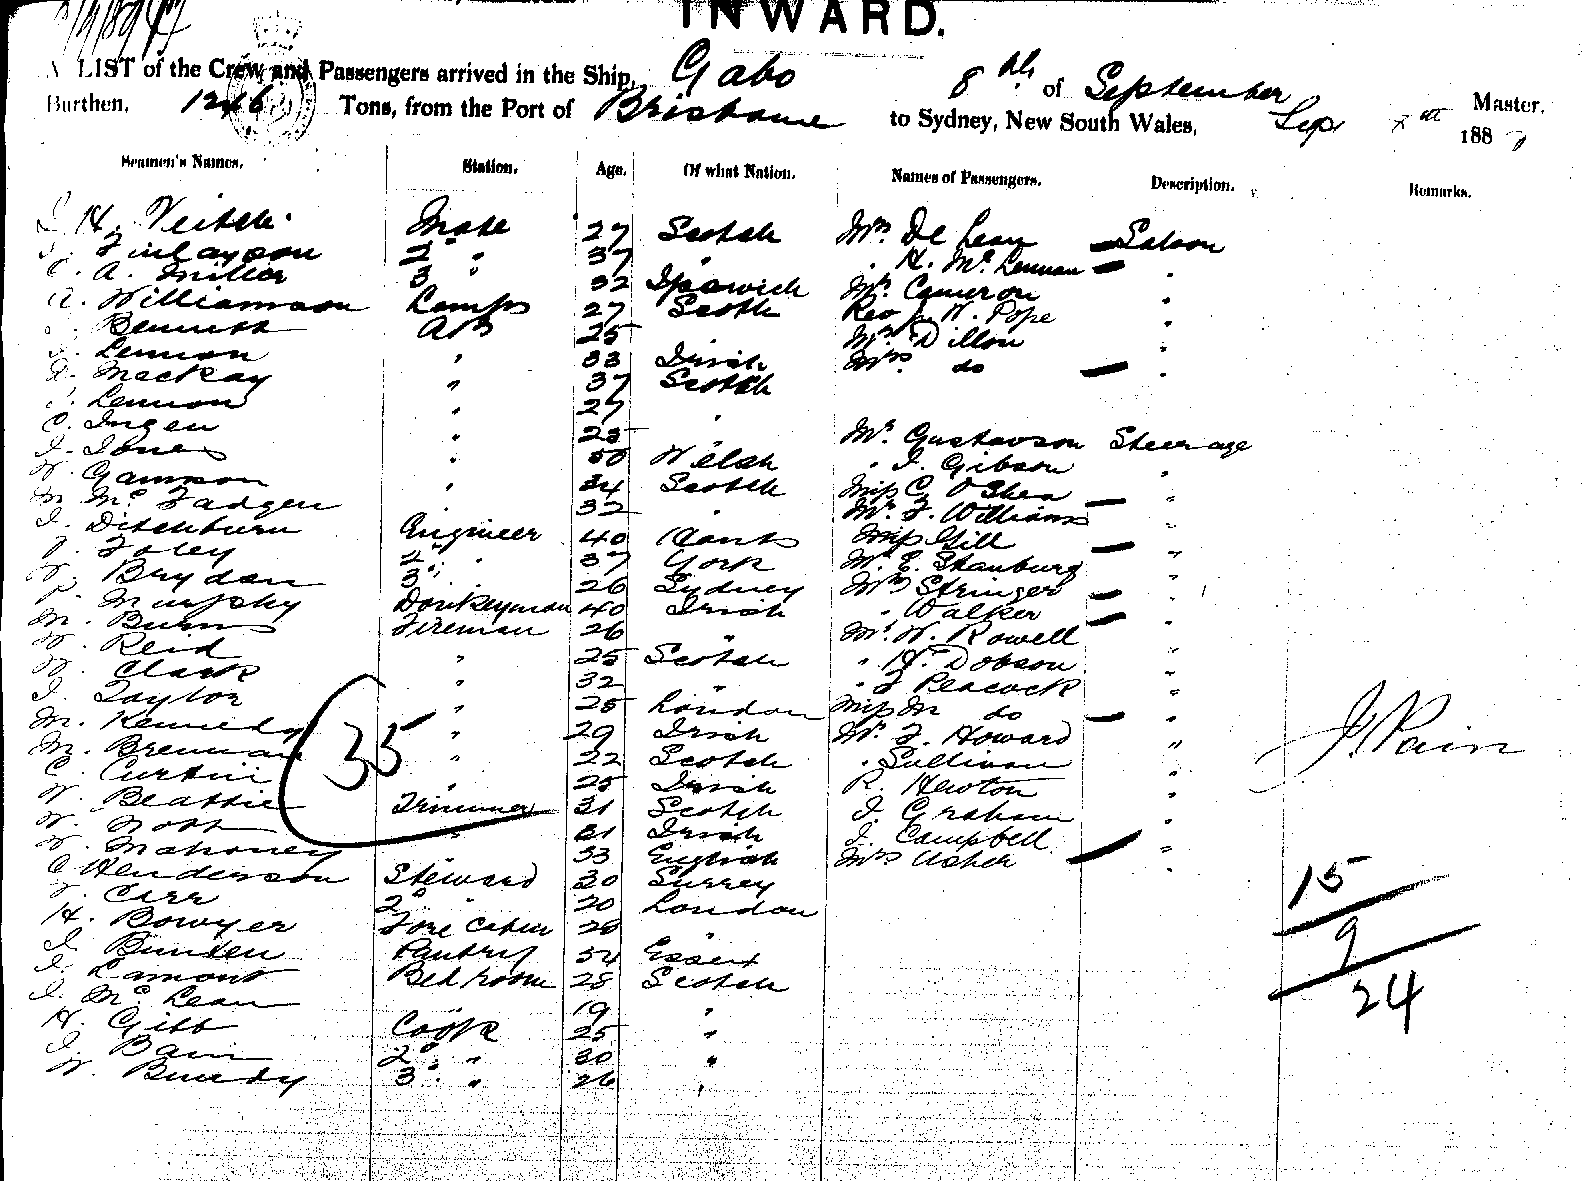 INWARD.
LIST of the Crew and Passengers arrived in the Ship, Gabo 8th of September
Burthen, 1246 Tons, from the Port of Brisbane to Sydney, New South Wales, Sep Master.
188
Seamen's Names. Station. Age. Of what Nation. Names of Passengers. Description. Remarks.
H. Veitch Mate 27 Scotch Mrs De Lean Saloon
Finlayson 2 " 37 " " H. McLennan "
A. Miller 3 " 32 Ipswich Mr. Cameron "
Williamson Lamps 27 Scotch Rev J. W. Pope "
Bennett AB 25 Mr Dillon "
Lennon " 33 Irish Mrs. do "
Mackay " 37 Scotch
Lennon " 27 "
C. Ingen " 25 " Mr. Gustavson Steerage
J. Jones " 50 Welsh " J. Gibson "
W. Gamson " 34 Scotch Miss C. O'Shea "
M. McFadgen 32 " Mr. F. Williams
J. Ditchburn Engineer 40 Miss Gill "
Foley 2 " 37 York Mr. E. Stanburg "
Brydan 3 " 26 Sydney Mrs Stringer "
P. Murphy Donkeyman 40 Irish " Walker "
M. Burns Fireman 26 " Mr. W. Rowell "
W. Reid " 25 Scotch " H. Dobson "
W. Clark " 32 " " J Peacock "
J. Taylor " 25 London Miss M do "
M. Kennedy " 29 Irish Mr. J. Howard "
M. Brennan " 22 Scotch " Sullivan "
C. Curtin " 25 Irish R. Newton "
W. Beattie Trimmer 31 Scotch J. Graham "
W. Nott " 31 Irish J. Campbell "
W. Mahoney " 33 English Mrs Usher "
C Henderson Steward 30 Surrey
Carr 2 " 20 London
H. Bowyer Fore Cabin 28 "
J. Bunten Pantry 34 Essex
J. Lamont Bed room 28 Scotch
J. McLean 19 "
H. Gibb Cook 25 "
J. Bain 2 " 30 "
W. Bundy 3 " 26 "
35
J. Pain
15
9
24